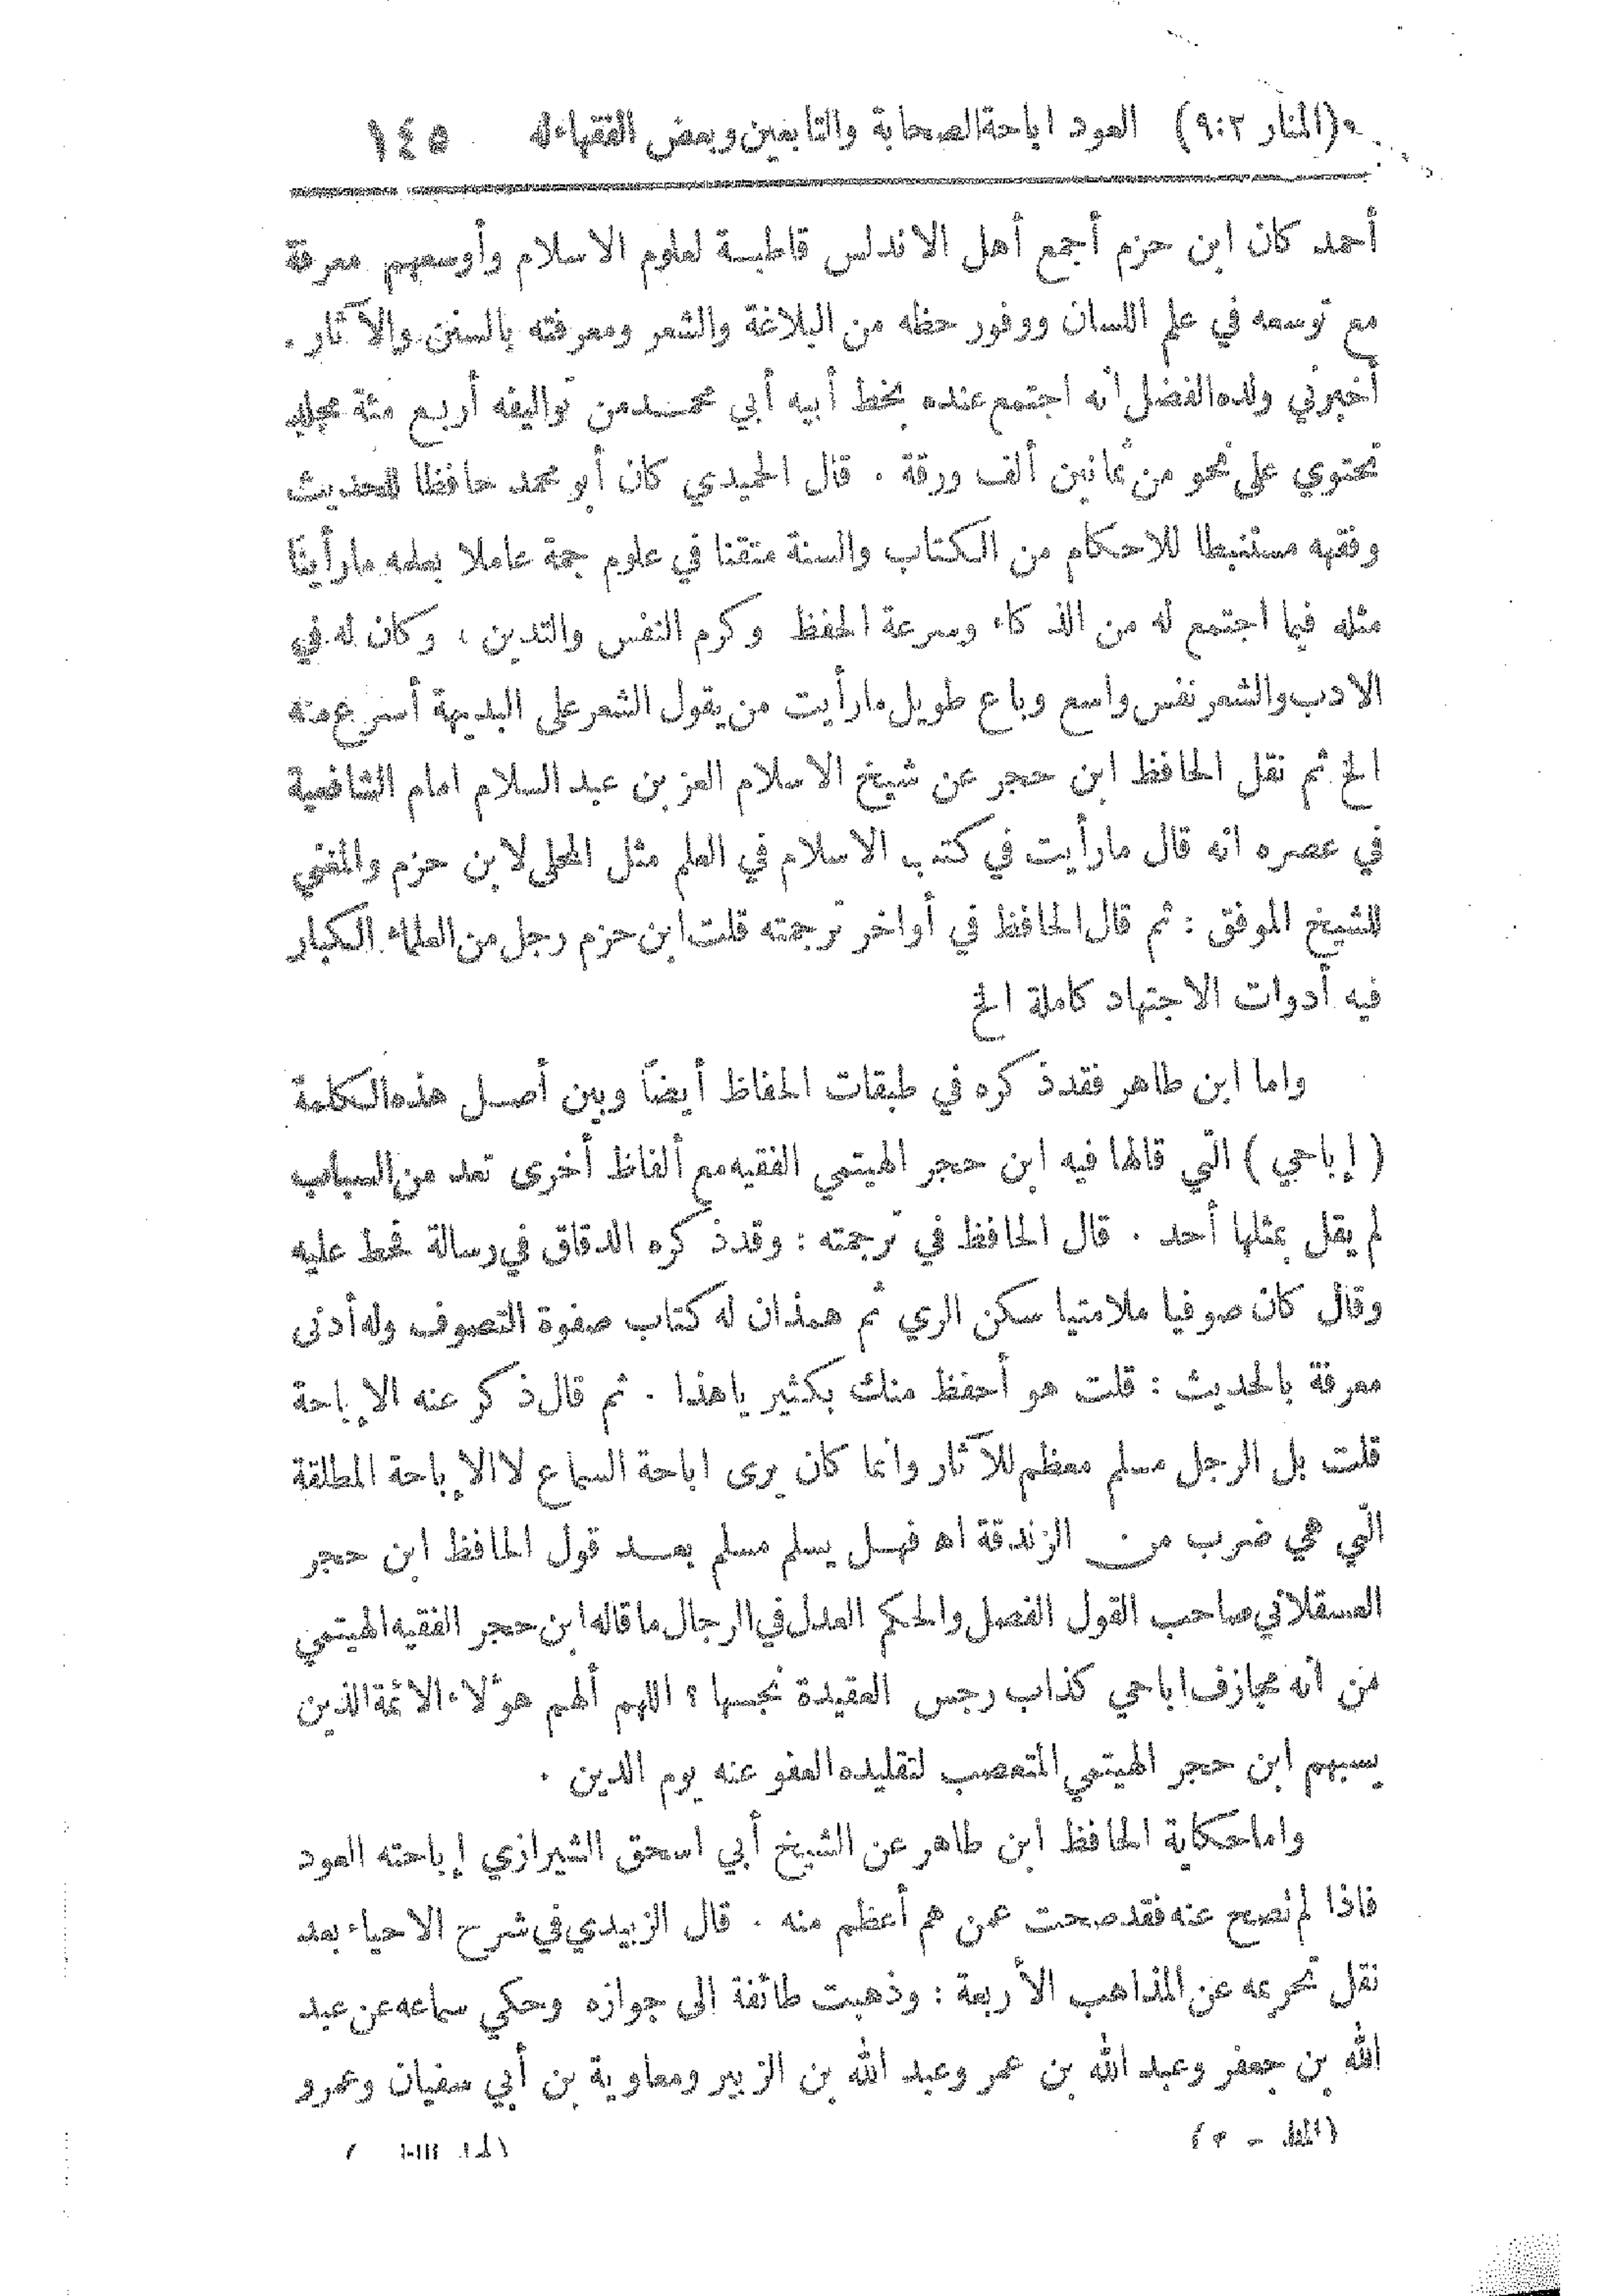 (المنار ٩:٢) العود اباحة الصحابة والتابعين وبعض الفقهاء له ١٤٥
أحمد كان ابن حزم أجمع أهل الاندلس قاطبة لعلوم الاسلام وأوسعهم معرفة
مع توسعه في علم اللسان ووفور حظه من البلاغة والشعر ومعرفته بالسنن والآثار .
أخبرني ولده الفضل أنه اجتمع عنده بخط أبيه أبي محمد من تواليفه أربع مئة مجلد
تحتوي على نحو من ثمانين ألف ورقة . قال الحميدي كان أبو محمد حافظا للحديث
وفقهه مستنبطا للاحكام من الكتاب والسنة متقنا في علوم جمة عاملا بعلمه مارأينا
مثله فيما اجتمع له من الذكاء وسرعة الحفظ وكرم النفس والتدين ، وكان له في
الادب والشعر نفس واسع وباع طويل مارأيت من يقول الشعر على البديهة أسرع منه
الخ ثم نقل الحافظ ابن حجر عن شيخ الاسلام العز بن عبد السلام امام الشافعية
في عصره انه قال مارأيت في كتب الاسلام في العلم مثل المحلى لابن حزم والمغني
للشيخ الموفق : ثم قال الحافظ في أواخر ترجمته قلت ابن حزم رجل من العلماء الكبار
فيه أدوات الاجتهاد كاملة الخ
واما ابن طاهر فقد ذكره في طبقات الحفاظ أيضاً وبين أصل هذه الكلمة
( إباحي ) التي قالها فيه ابن حجر الهيتمي الفقيه مع ألفاظ أخرى تعد من السباب
لم يقل بمثلها أحد . قال الحافظ في ترجمته : وقد ذكره الدقاق في رسالة فحط عليه
وقال كان صوفيا ملامتيا سكن الري ثم همذان له كتاب صفوة التصوف وله أدنى
معرفة بالحديث : قلت هو أحفظ منك بكثير ياهذا . ثم قال ذكر عنه الإباحة
قلت بل الرجل مسلم معظم للآثار وانما كان يرى اباحة السماع لا الإباحة المطلقة
التي هي ضرب من الزندقة اه فهل يسلم مسلم بعد قول الحافظ ابن حجر
العسقلاني صاحب القول الفصل والحكم العدل في الرجال ما قاله ابن حجر الفقيه الهيتمي
من انه مجازف اباحي كذاب رجس العقيدة نجسها ؟ اللهم ألهم هؤلاء الائمة الذين
يسبهم ابن حجر الهيتمي المتعصب لتقليده العفو عنه يوم الدين .
واما حكاية الحافظ ابن طاهر عن الشيخ أبي اسحق الشيرازي إباحته العود
فاذا لم تصح عنه فقد صحت عمن هم أعظم منه . قال الزبيدي في شرح الاحياء بعد
نقل تحريمه عن المذاهب الأربعة : وذهبت طائفة الى جوازه وحكي سماعه عن عبد
الله بن جعفر وعبد الله بن عمر وعبد الله بن الزبير ومعاوية بن أبي سفيان وعمرو